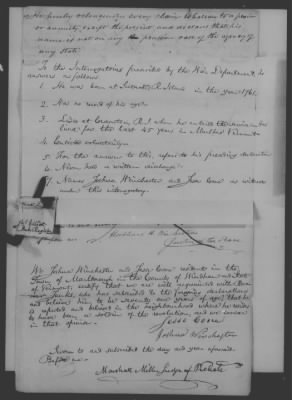 He hereby relinquishes every claim whatever to a pension
or annuity, except the present and declares that his
name is not on any pension role of the agency of
any State.
To the Interrogatories prescribed by the War Department, he
answers as follows
1. He was born at R. Island in the year 1761
2. Has no record of his age
3. Lived at Cranston R.I. when he entered the service has
lived for the last 45 years in Vermont
4. Enlisted voluntarily
5. For the answer to this, refers to his preceding declaration
6. Never had a written discharge
7. Names Joshua Winchester and Jesse Cone as witness
under this interrogatory.
We Joshua Winchester and Jesse Cone resident in the
Town of Marlborough in the County of Windham and State
of Vermont, certify that we are well acquainted with
who has subscribed to the foregoing declaration
and believe him to be seventy one years of age, that he
is reputed and believed in the neighbourhood where he resides
to have been a soldier of the revolution, and we concur
in that opinion.
Jesse Cone
Joshua Winchester
Sworn to and subscribed the day and year aforesaid.
Before me
Marshall Miller Judge of Probate